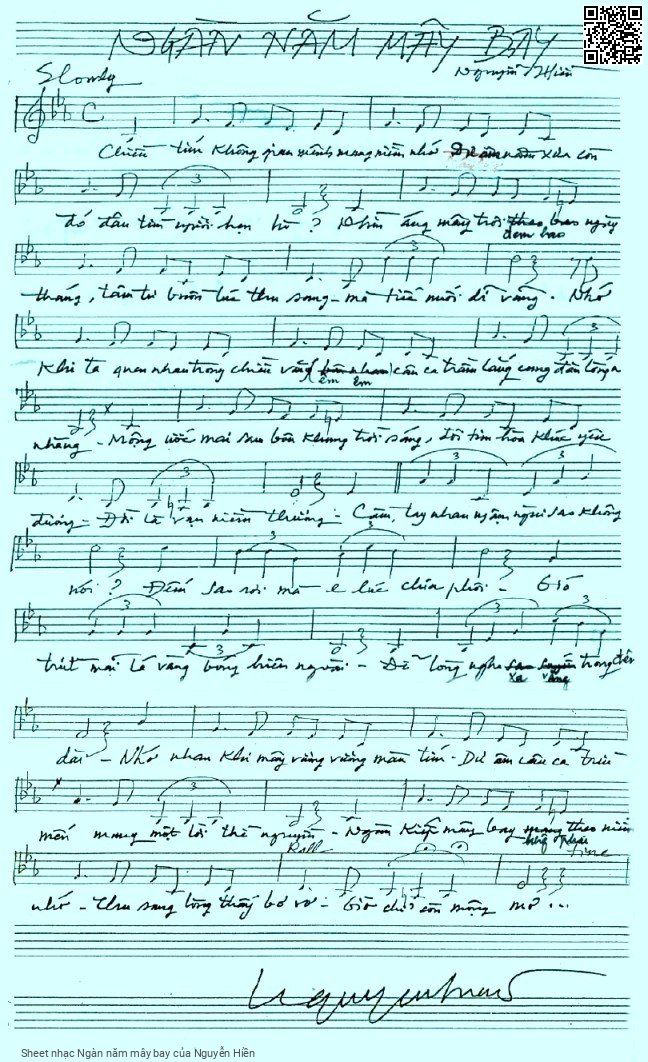 NGÀN NĂM MÂY BAY
Nguyễn Hiền
Slowly
Chiều tím không gian mênh mang niềm nhớ xưa còn
đó đâu tím người hẹn hò? Nhìn áng mây trời theo bao ngày
đem bao
tháng, tâm tư buồn lúc thu sang - mà tiếc nuối dĩ vãng. Nhớ
Khi ta quen nhau trong chiều vắng câu ca trầm lắng cung đàn
êm êm
nhàng - Mộng ước mai sau bên khung trời sáng, lời tim hòa khúc yêu
đương - Đời là vạn niềm thương - Cầm tay nhau ngậm ngùi sao không
nói? Đếm sao rơi mà e lúc chia phôi - Gió
trút mãi lá vàng bóng biên người - Để lòng nghe trong đêm
xa vắng
dài - Nhớ nhau khi mây vương vương màu tím - Dư âm câu ca trìu
mến mang một lời thề nguyền - Ngàn kiếp mây bay mang theo niềm
Rall
Fine
nhớ - Thu sang lòng thấy bơ vơ - Giờ chỉ còn mộng mơ...
Sheet nhạc Ngàn năm mây bay của Nguyễn Hiền